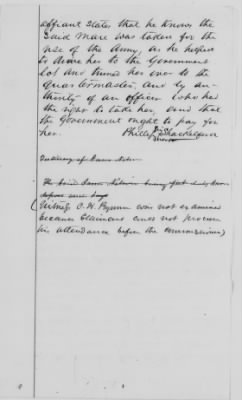 affiant states that he knows the
said Mare was taken for the
use of the Army, as he helped
to drive her to the Government
lot and turned her over to the
quartermaster, and by au-
thority of an officer who had
the right to take her, and that
the Government ought to pay for
her.
Phillip his mark
Testimony of
The said James being first duly sworn
deposes and says
(Witness C. H. was not examined
because Claimant could not procure
his attendance before the commissioner)